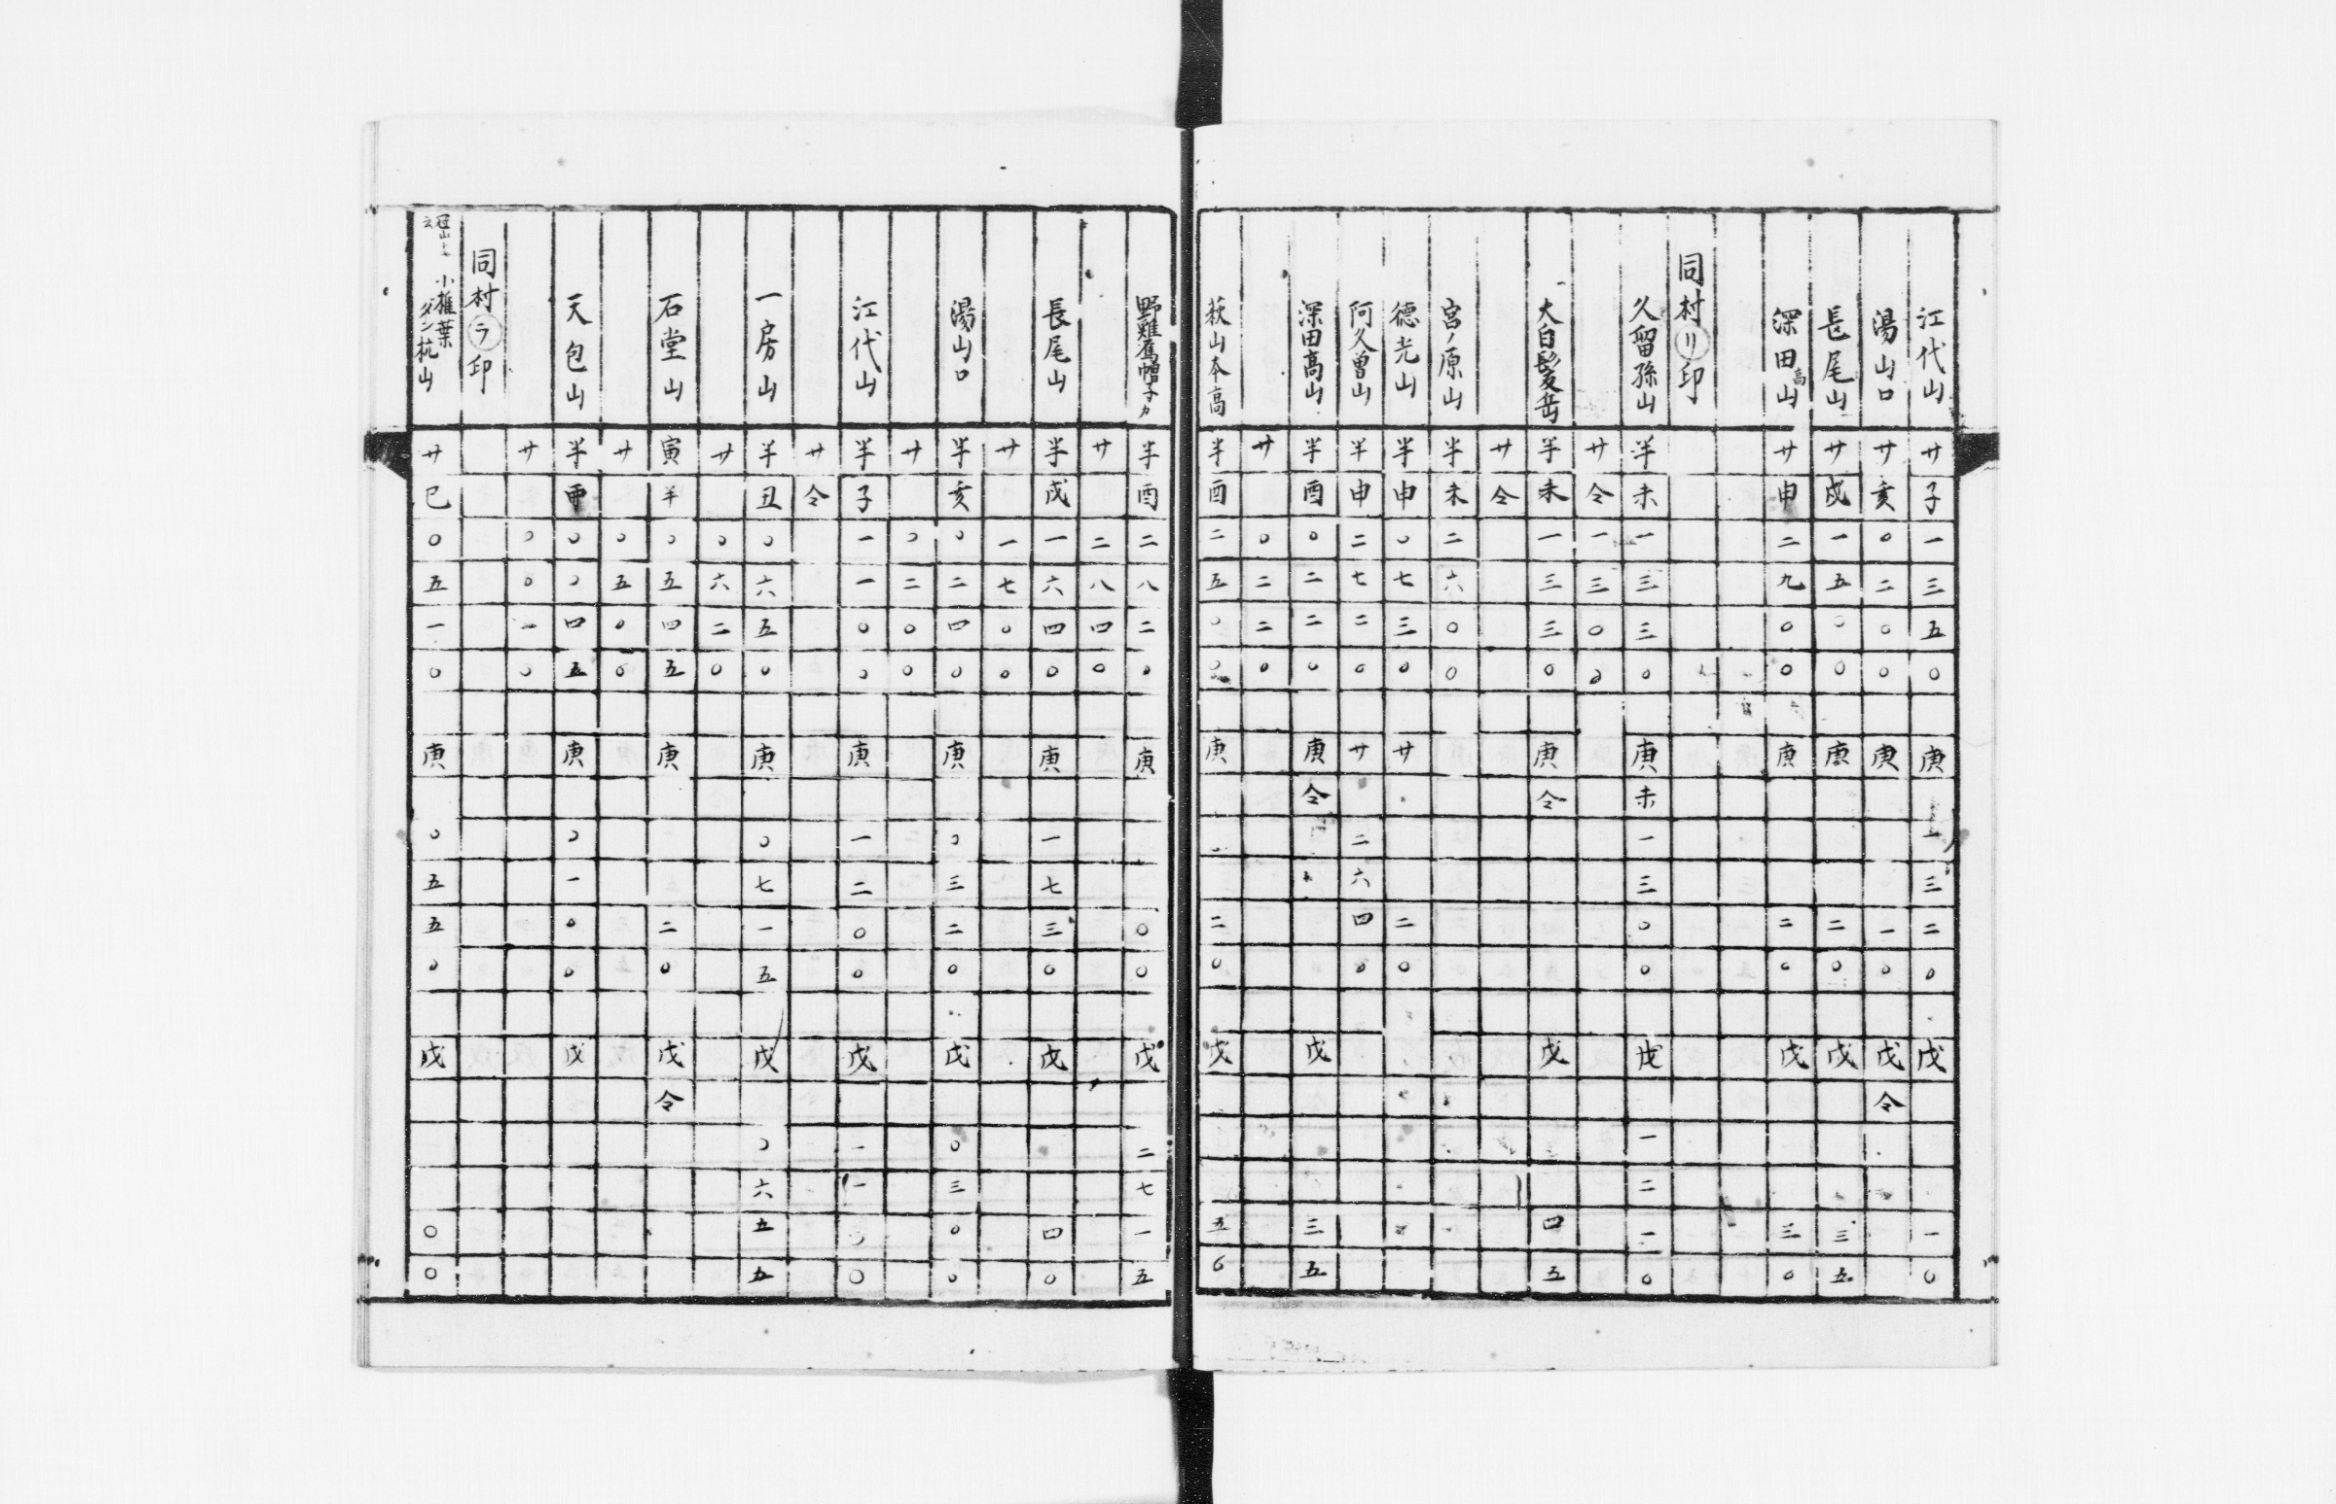 江代山 廿 子 一 三 五 〇 庚 一 三 二 〇 戊 一 〇
湯山口 廿 亥 〇 二 〇 〇 庚 一 〇 戊 令
長尾山 廿 戌 一 五 〇 〇 庚 二 〇 戊 三 五
深田高山 廿 申 二 九 〇 〇 庚 二 〇 戊 三 〇
同村リ印
久留孫山 半 未 一 三 三 〇 庚 未 一 三 〇 〇 戊 一 二 二 〇
廿 令 一 三 〇 〇
大白髪岳 半 未 一 三 三 〇 庚 令 戊 四 五
廿 令
宮ノ原山 半 未 二 六 〇 〇
徳光山 半 申 〇 七 三 〇 廿 二 〇
阿久曽山 半 申 二 七 二 〇 廿 二 六 四 〇
深田高山 半 酉 〇 二 二 〇 庚 令 戊 三 五
廿 〇 二 二 〇
荻山本高 半 酉 二 五 〇 〇 庚 二 〇 戊 五 〇
野難烏帽子カ 半 酉 二 八 二 〇 庚 〇 〇 戊 二 七 一 五
廿 二 八 四 〇
長尾山 半 戌 一 六 四 〇 庚 一 七 三 〇 戊 四 〇
廿 一 七 〇 〇
湯山口 半 亥 〇 二 四 〇 庚 〇 三 二 〇 戊 〇 三 〇 〇
廿 〇 二 〇 〇
江代山 半 子 一 一 〇 〇 庚 一 二 〇 〇 戊 一 一 〇 〇
廿 令
一房山 半 丑 〇 六 五 〇 庚 〇 七 一 五 戊 〇 六 五 五
廿 〇 六 二 〇
石堂山 寅 半 〇 五 四 五 庚 二 〇 戊 令
廿 〇 五 〇 〇
天包山 半 〇 〇 四 五 庚 〇 一 〇 〇 戊
廿 〇 〇 一 〇
同村ラ印
冠山ト云 小椎葉ダン杭山 廿 巳 〇 五 一 〇 庚 〇 五 五 〇 戊 〇 〇